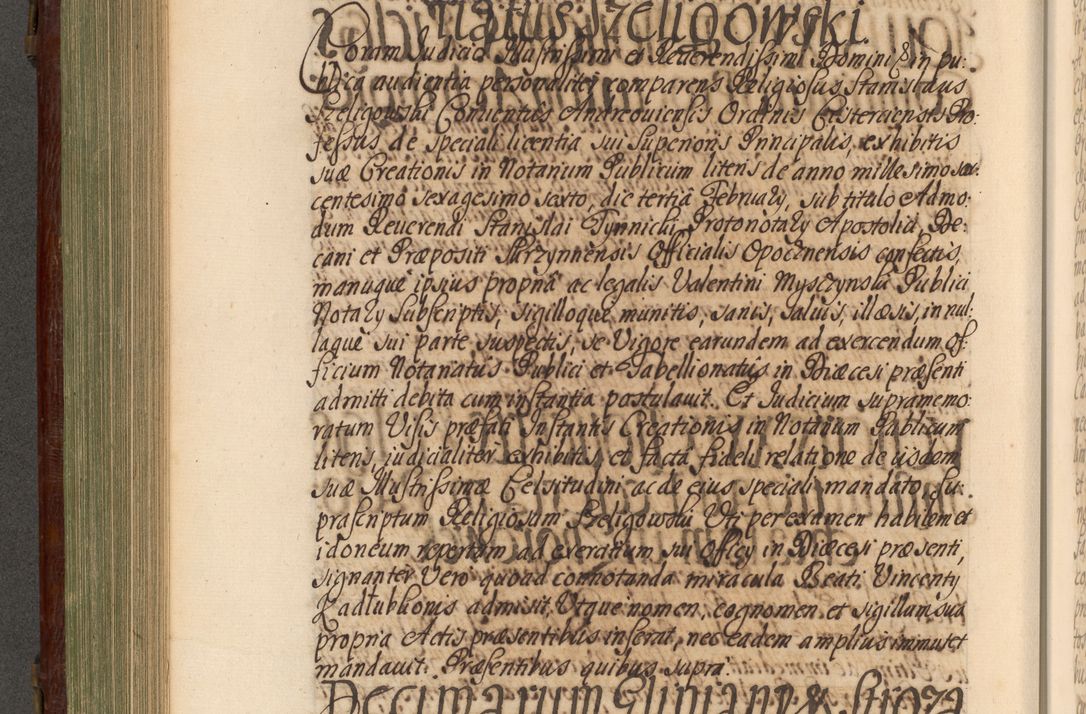 natus Szeligowski.
Coram Judicio Illustrissimi et Reverendissimi Domini & in pu:
blica audientia personaliter comparens Religiosus Stanislaus
Szeligowski Conventus Andreoviensis Ordinis Cisterciensis Pro:
fessus de speciali licentia sui Superioris Principalis, exhibitis
suæ Creationis in Notarium Publicum literis de anno millesimo sex:
centesimo sexagesimo sexto, die tertia February, sub titulo Admo:
dum Reverendi Stanislai Tynnicki Protonotary Apostolici, De:
cani et Præpositi Officialis Opocznensis confectis,
manuque ipsius propria ac legalis Valentini Mysczynski Publici
Notary Subscriptis, sigilloque munitis, sanis, salvis, illæsis, in nul:
laque sui parte suspectis, se Vigore earundem ad exercendum Of:
ficium Notariatus Publici et Tabellionatus in Diæcesi præsenti
admitti debita cum instantia postulavit. Et Judicium supramemo:
ratum Visis præfati Instantis Creationis in Notarium Publicum
literis, judicialiter exhibitis, et facta fideli relatione de iisdem
suæ Illustrissimæ Celsitudini ac de eius speciali mandato, Su:
prascriptum Religiosum Szeligowski Vti per examen habilem et
idoneum repertum ad exercitium sui Officy in Diæcesi præsenti,
signanter Vero quoad connotanda miracula Beati Vincenty
Kadłubkonis admisit, Vtque nomen, cognomen et sigillum sua
propria Actis præsentibus inserat, nec eadem amplius immutet
mandavit. Præsentibus quibus supra.
Decimarum